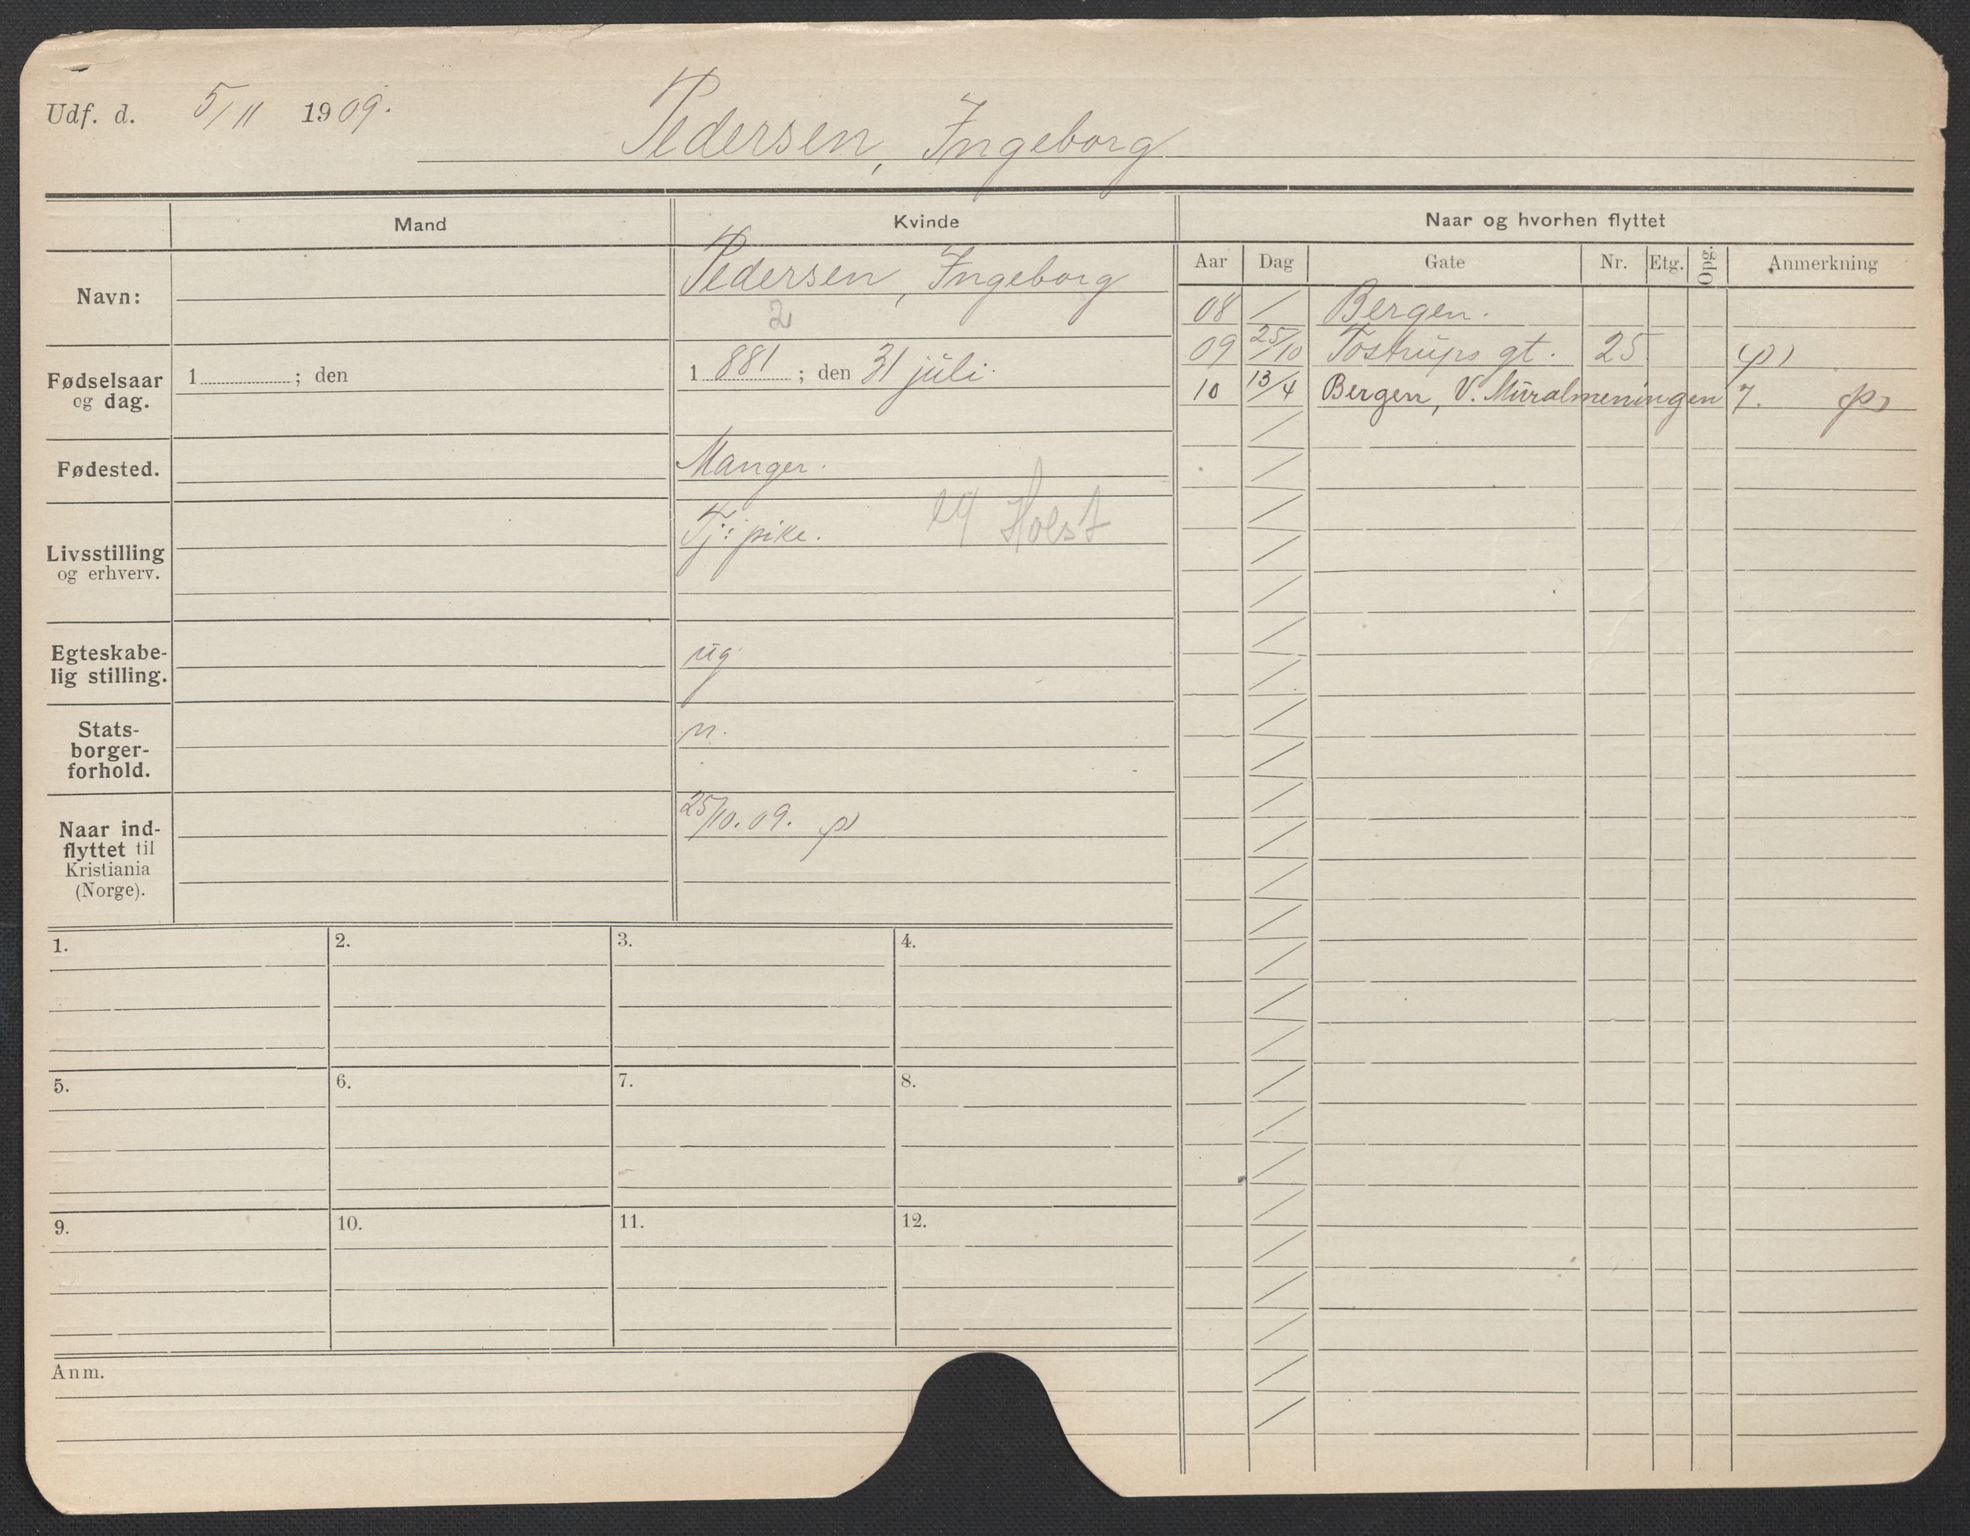 Udf. d. 5/11 1909.
Pedersen, Ingeborg
Mand
Kvinde
Naar og hvorhen flyttet
Aar Dag Gate Nr. Etg. Opg. Anmerkning
Navn:
Pedersen, Ingeborg
2
08 / Bergen.
09 25/10 Tostrups gt. 25 (p)
10 13/4 Bergen, V. Muralmeningen 7. (p)
Fødselsaar
og dag.
1 ; den
1881 ; den 31 juli.
Fødested.
Manger.
Livsstilling
og erhverv.
Tj: pike.
Holst
Egteskabe-
lig stilling.
ug
Stats-
borger-
forhold.
n.
Naar ind-
flyttet til
Kristiania
(Norge).
25/10.09. p)
1. 2. 3. 4.
5. 6. 7. 8.
9. 10. 11. 12.
Anm.